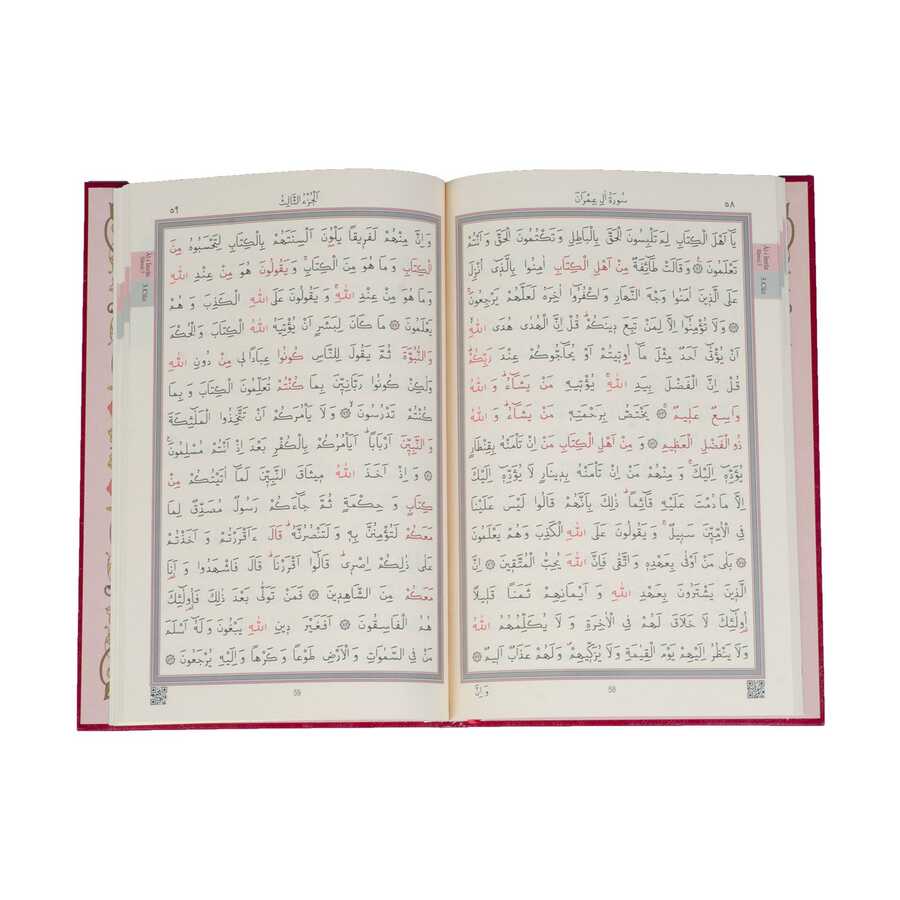 ٥٨
سُورَةُ اٰلِ عِمْرٰنَ
يَٓا اَهْلَ الْكِتَابِ لِمَ تَلْبِسُونَ الْحَقَّ بِالْبَاطِلِ وَ تَكْتُمُونَ الْحَقَّ وَ اَنْتُمْ
تَعْلَمُونَ ۞ وَ قَالَتْ طَٓائِفَةٌ مِنْ اَهْلِ الْكِتَابِ اٰمِنُوا بِالَّذٖٓى اُنْزِلَ
عَلَى الَّذٖينَ اٰمَنُوا وَجْهَ النَّهَارِ وَ اكْفُرُٓوا اٰخِرَهُ لَعَلَّهُمْ يَرْجِعُونَ
۞ وَ لَا تُؤْمِنُٓوا اِلَّا لِمَنْ تَبِعَ دٖينَكُمْ قُلْ اِنَّ الْهُدٰى هُدَى اللّٰهِ
اَنْ يُؤْتٰٓى اَحَدٌ مِثْلَ مَٓا اُوتٖيتُمْ اَوْ يُحَٓاجُّوكُمْ عِنْدَ رَبِّكُمْ
قُلْ اِنَّ الْفَضْلَ بِيَدِ اللّٰهِ يُؤْتٖيهِ مَنْ يَشَٓاءُ وَ اللّٰهُ
وَاسِعٌ عَلٖيمٌ ۞ يَخْتَصُّ بِرَحْمَتِهٖ مَنْ يَشَٓاءُ وَ اللّٰهُ
ذُو الْفَضْلِ الْعَظٖيمِ ۞ وَ مِنْ اَهْلِ الْكِتَابِ مَنْ اِنْ تَأْمَنْهُ بِقِنْطَارٍ
يُؤَدِّهٖٓ اِلَيْكَ وَ مِنْهُمْ مَنْ اِنْ تَأْمَنْهُ بِدٖينَارٍ لَا يُؤَدِّهٖٓ اِلَيْكَ
اِلَّا مَا دُمْتَ عَلَيْهِ قَٓائِمًا ذٰلِكَ بِاَنَّهُمْ قَالُوا لَيْسَ عَلَيْنَا
فِى الْاُمِّيّٖنَ سَبٖيلٌ وَ يَقُولُونَ عَلَى اللّٰهِ الْكَذِبَ وَ هُمْ يَعْلَمُونَ
۞ بَلٰى مَنْ اَوْفٰى بِعَهْدِهٖ وَ اتَّقٰى فَاِنَّ اللّٰهَ يُحِبُّ الْمُتَّقٖينَ ۞ اِنَّ
الَّذٖينَ يَشْتَرُونَ بِعَهْدِ اللّٰهِ وَ اَيْمَانِهِمْ ثَمَنًا قَلٖيلًا
اُولٰٓئِكَ لَا خَلَاقَ لَهُمْ فِى الْاٰخِرَةِ وَ لَا يُكَلِّمُهُمُ اللّٰهُ
وَ لَا يَنْظُرُ اِلَيْهِمْ يَوْمَ الْقِيٰمَةِ وَ لَا يُزَكّٖيهِمْ وَ لَهُمْ عَذَابٌ اَلٖيمٌ ۞
58
وَ اِنَّ
الْجُزْءُ الثَّالِثُ
٥٩
وَ اِنَّ مِنْهُمْ لَفَرٖيقًا يَلْوُ۫نَ اَلْسِنَتَهُمْ بِالْكِتَابِ لِتَحْسَبُوهُ مِنَ
الْكِتَابِ وَ مَا هُوَ مِنَ الْكِتَابِ وَ يَقُولُونَ هُوَ مِنْ عِنْدِ اللّٰهِ
وَ مَا هُوَ مِنْ عِنْدِ اللّٰهِ وَ يَقُولُونَ عَلَى اللّٰهِ الْكَذِبَ وَ هُمْ
يَعْلَمُونَ ۞ مَا كَانَ لِبَشَرٍ اَنْ يُؤْتِيَهُ اللّٰهُ الْكِتَابَ وَ الْحُكْمَ
وَ النُّبُوَّةَ ثُمَّ يَقُولَ لِلنَّاسِ كُونُوا عِبَادًا لٖى مِنْ دُونِ اللّٰهِ
وَ لٰكِنْ كُونُوا رَبَّانِيّٖنَ بِمَا كُنْتُمْ تُعَلِّمُونَ الْكِتَابَ وَ بِمَا
كُنْتُمْ تَدْرُسُونَ ۞ وَ لَا يَأْمُرَكُمْ اَنْ تَتَّخِذُوا الْمَلٰٓئِكَةَ
وَ النَّبِيّٖنَ اَرْبَابًا اَيَأْمُرُكُمْ بِالْكُفْرِ بَعْدَ اِذْ اَنْتُمْ مُسْلِمُونَ
۞ وَ اِذْ اَخَذَ اللّٰهُ مٖيثَاقَ النَّبِيّٖنَ لَمَٓا اٰتَيْتُكُمْ مِنْ
كِتَابٍ وَ حِكْمَةٍ ثُمَّ جَٓاءَكُمْ رَسُولٌ مُصَدِّقٌ لِمَا
مَعَكُمْ لَتُؤْمِنُنَّ بِهٖ وَ لَتَنْصُرُنَّهُ قَالَ ءَاَقْرَرْتُمْ وَ اَخَذْتُمْ
عَلٰى ذٰلِكُمْ اِصْرٖى قَالُٓوا اَقْرَرْنَا قَالَ فَاشْهَدُوا وَ اَنَا
مَعَكُمْ مِنَ الشَّاهِدٖينَ ۞ فَمَنْ تَوَلّٰى بَعْدَ ذٰلِكَ فَاُولٰٓئِكَ
هُمُ الْفَاسِقُونَ ۞ اَفَغَيْرَ دٖينِ اللّٰهِ يَبْغُونَ وَ لَهُٓ اَسْلَمَ
مَنْ فِى السَّمٰوَاتِ وَ الْاَرْضِ طَوْعًا وَ كَرْهًا وَ اِلَيْهِ يُرْجَعُونَ ۞
59